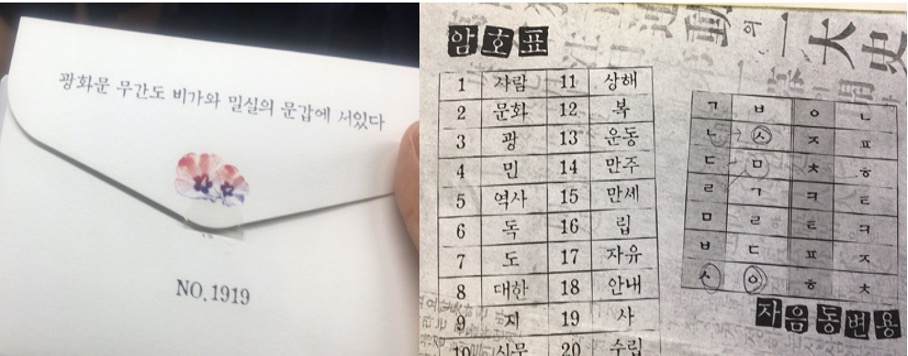 광화문 무간도 비가와 밀실의 문갑에 서있다
NO. 1919
의 一大史
암호표
1 사람 11 상해
2 문화 12 복
3 광 13 운동
4 민 14 만주
5 역사 15 만세
6 독 16 립
7 도 17 자유
8 대한 18 안내
9 지 19 사
10 신문 20 수립
ㄱ ㅂ ㅇ ㄴ
ㄴ ㅅ ㅈ ㅍ
ㄷ ㅁ ㅊ ㅎ
ㄹ ㄱ ㅋ ㅌ
ㅁ ㄹ ㅌ ㅋ
ㅂ ㄷ ㅍ ㅈ
ㅅ ㅇ ㅎ ㅊ
자음동변용